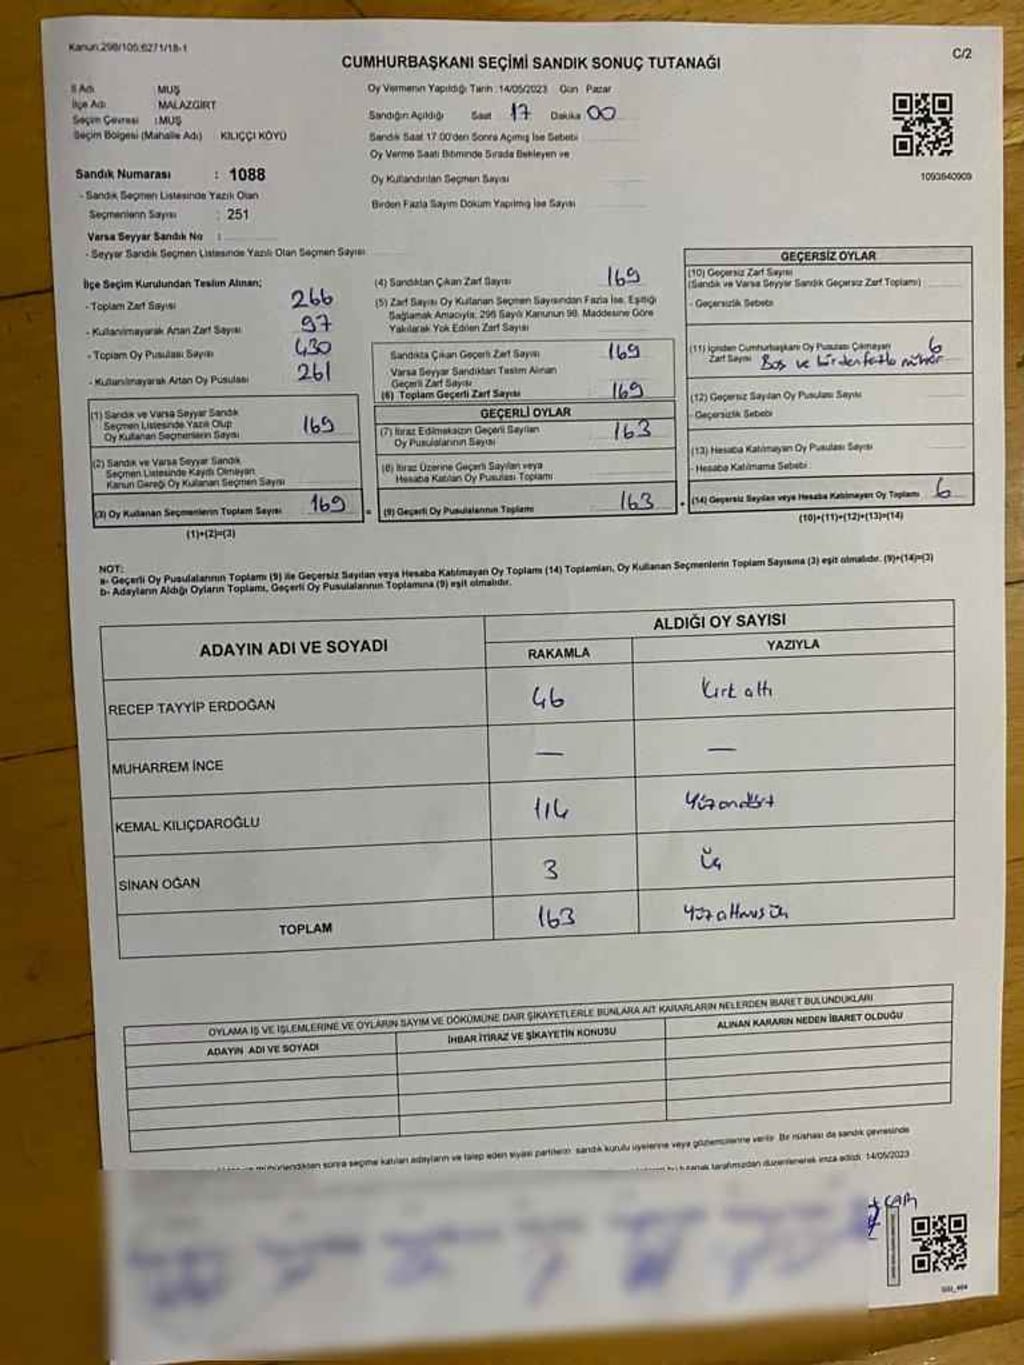 Kanun:298/105;6271/18-1
C/2
CUMHURBAŞKANI SEÇİMİ SANDIK SONUÇ TUTANAĞI
İl Adı : MUŞ
İlçe Adı : MALAZGİRT
Seçim Çevresi : MUŞ
Seçim Bölgesi (Mahalle Adı) KILIÇÇI KÖYÜ
Sandık Numarası : 1088
- Sandık Seçmen Listesinde Yazılı Olan
Seçmenlerin Sayısı : 251
Varsa Seyyar Sandık No :
- Seyyar Sandık Seçmen Listesinde Yazılı Olan Seçmen Sayısı
Oy Vermenin Yapıldığı Tarih :14/05/2023 Gün : Pazar
Sandığın Açıldığı Saat 17 Dakika 00
Sandık Saat 17.00'den Sonra Açılmış İse Sebebi
Oy Verme Saati Bitiminde Sırada Bekleyen ve
Oy Kullandırılan Seçmen Sayısı
Birden Fazla Sayım Döküm Yapılmış İse Sayısı
1093640909
İlçe Seçim Kurulundan Teslim Alınan;
- Toplam Zarf Sayısı 266
- Kullanılmayarak Artan Zarf Sayısı 97
- Toplam Oy Pusulası Sayısı 430
- Kullanılmayarak Artan Oy Pusulası 261
(1) Sandık ve Varsa Seyyar Sandık
Seçmen Listesinde Yazılı Olup
Oy Kullanan Seçmenlerin Sayısı 169
(2) Sandık ve Varsa Seyyar Sandık
Seçmen Listesinde Kaydı Olmayan
Kanun Gereği Oy Kullanan Seçmen Sayısı
(3) Oy Kullanan Seçmenlerin Toplam Sayısı 169
(1)+(2)=(3)
(4) Sandıktan Çıkan Zarf Sayısı 169
(5) Zarf Sayısı Oy Kullanan Seçmen Sayısından Fazla İse, Eşitliği
Sağlamak Amacıyla, 298 Sayılı Kanunun 98. Maddesine Göre
Yakılarak Yok Edilen Zarf Sayısı
Sandıkta Çıkan Geçerli Zarf Sayısı 169
Varsa Seyyar Sandıktan Teslim Alınan
Geçerli Zarf Sayısı
(6) Toplam Geçerli Zarf Sayısı 169
GEÇERLİ OYLAR
(7) İtiraz Edilmeksizin Geçerli Sayılan
Oy Pusulalarının Sayısı 163
(8) İtiraz Üzerine Geçerli Sayılan veya
Hesaba Katılan Oy Pusulası Toplamı
(9) Geçerli Oy Pusulalarının Toplamı 163
GEÇERSİZ OYLAR
(10) Geçersiz Zarf Sayısı
(Sandık ve Varsa Seyyar Sandık Geçersiz Zarf Toplamı)
- Geçersizlik Sebebi
(11) İçinden Cumhurbaşkanı Oy Pusulası Çıkmayan 6
Zarf Sayısı Boş ve birden fazla mühür
(12) Geçersiz Sayılan Oy Pusulası Sayısı
- Geçersizlik Sebebi
(13) Hesaba Katılmayan Oy Pusulası Sayısı
- Hesaba Katılmama Sebebi
(14) Geçersiz Sayılan veya Hesaba Katılmayan Oy Toplamı 6
(10)+(11)+(12)+(13)=(14)
NOT:
a- Geçerli Oy Pusulalarının Toplamı (9) ile Geçersiz Sayılan veya Hesaba Katılmayan Oy Toplamı (14) Toplamları, Oy Kullanan Seçmenlerin Toplam Sayısına (3) eşit olmalıdır. (9)+(14)=(3)
b- Adayların Aldığı Oyların Toplamı, Geçerli Oy Pusulalarının Toplamına (9) eşit olmalıdır.
ADAYIN ADI VE SOYADI
ALDIĞI OY SAYISI
RAKAMLA YAZIYLA
RECEP TAYYİP ERDOĞAN 46 Kırk altı
MUHARREM İNCE — —
KEMAL KILIÇDAROĞLU 114 Yüzondört
SİNAN OĞAN 3 Üç
TOPLAM 163 Yüzaltmışüç
OYLAMA İŞ VE İŞLEMLERİNE VE OYLARIN SAYIM VE DÖKÜMÜNE DAİR ŞİKAYETLERLE BUNLARA AİT KARARLARIN NELERDEN İBARET BULUNDUKLARI
ADAYIN ADI VE SOYADI İHBAR İTİRAZ VE ŞİKAYETİN KONUSU ALINAN KARARIN NEDEN İBARET OLDUĞU
mühürlendikten sonra seçime katılan adayların ve talep eden siyasi partilerin sandık kurulu üyelerine veya gözlemcilerine verilir. Bir nüshası da sandık çevresinde
tutanak tarafımızdan düzenlenerek imza edildi. 14/05/2023